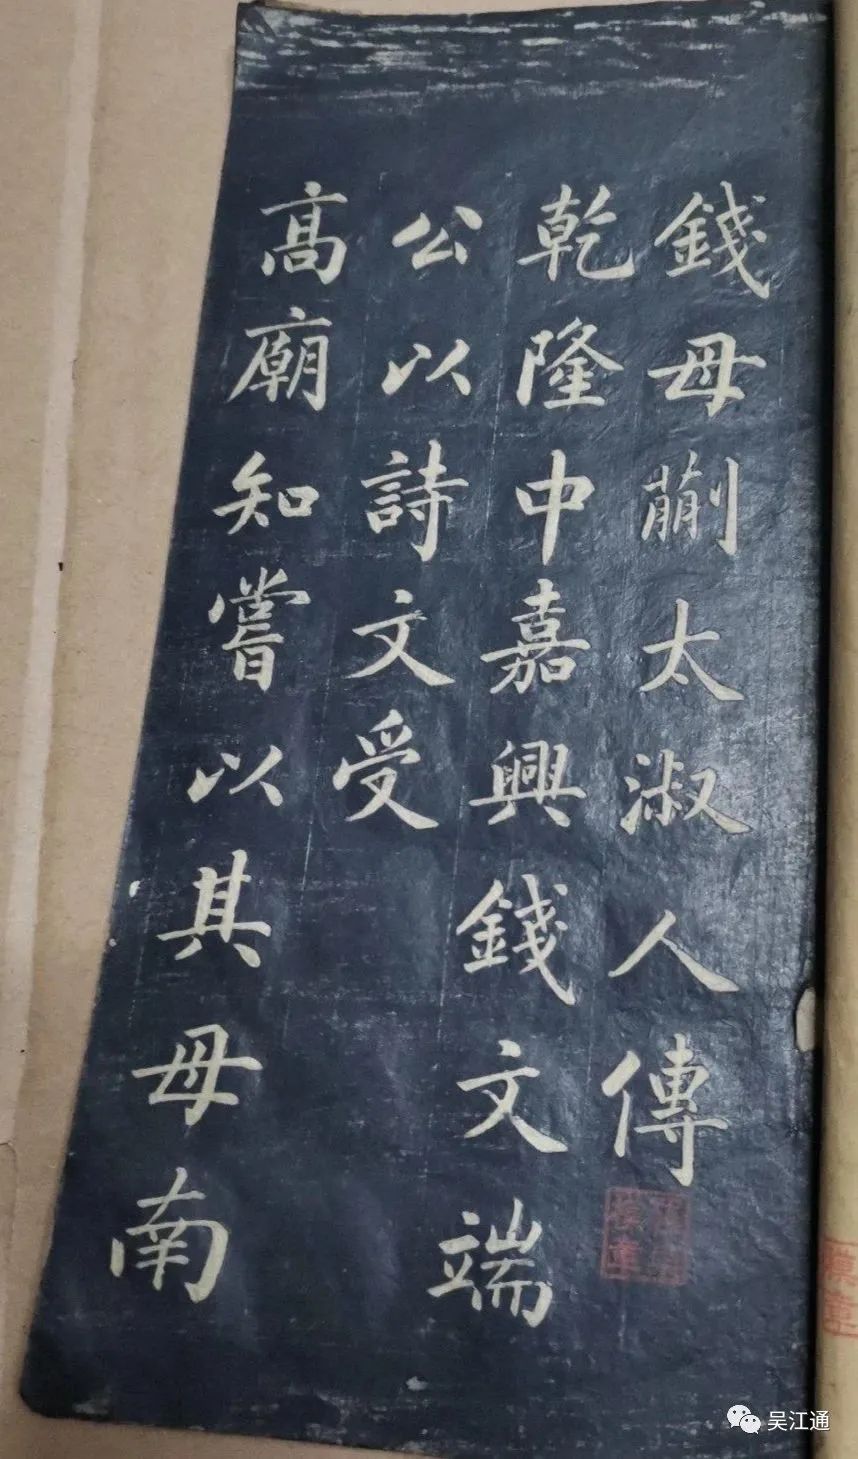 錢母蒯太淑人傳
乾隆中嘉興錢文端
公以詩文受
高廟知嘗以其母南
吴江通